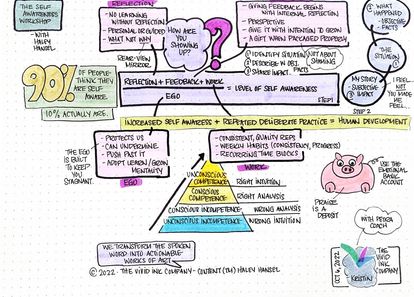 THE SELF
AWARENESS
WORKSHOP
- WITH
HALEY
HANSEL
REFLECTION
- NO LEARNING
WITHOUT REFLECTION
- PERSONAL OR GUIDED
- WHAT NOT WHY
REAR-VIEW
MIRROR
HOW ARE
YOU
SHOWING
UP?
- GIVING FEEDBACK BEGINS
WITH INTERNAL REFLECTION
- PERSPECTIVE
- GIVE IT WITH INTENTION TO GROW
- A GIFT WHEN PACKAGED PROPERLY
① IDENTIFY SITUATION
② DESCRIBE BY OBJ.
③ SHARE IMPACT.
NOT ABOUT
SHAMING
FACTS
① WHAT
HAPPENED
- OBJECTIVE
- FACTS
THE
SITUATION
②
MY STORY
- SUBJECTIVE
- MY IMPACT
I FEEL
NOT
YOU MADE
ME FEEL
STEP 1
STEP 2
90%
OF PEOPLE
THINK THEY
ARE SELF
AWARE.
10% ACTUALLY ARE.
REFLECTION + FEEDBACK + WORK
EGO
= LEVEL OF SELF AWARENESS
INCREASED SELF AWARENESS + REPEATED DELIBERATE PRACTICE = HUMAN DEVELOPMENT
THE EGO
IS BUILT
TO KEEP
YOU
STAGNANT.
- PROTECTS US
- CAN UNDERMINE
- PUSH PAST IT
- ADOPT LEARN/GROW
MENTALITY
EGO
- CONSISTENT, QUALITY REPS
- WEEKLY HABITS (CONSISTENCY, PROGRESS)
- RECURRING TIME BLOCKS
WORK
UNCONSCIOUS
COMPETENCE
- RIGHT INTUITION
CONSCIOUS
COMPETENCE
- RIGHT ANALYSIS
CONSCIOUS INCOMPETENCE
- WRONG ANALYSIS
UNCONSCIOUS INCOMPETENCE
- WRONG INTUITION
USE THE
EMOTIONAL
BANK
ACCOUNT
PRAISE IS
A DEPOSIT
WE TRANSFORM THE SPOKEN
WORD INTO ACTIONABLE
WORKS OF ART
© 2022 - THE VIVID INK COMPANY - CONTENT (TM) HALEY HANSEL
OCT 6, 2022
COACH
Kristin
THE
VIVID
INK
COMPANY